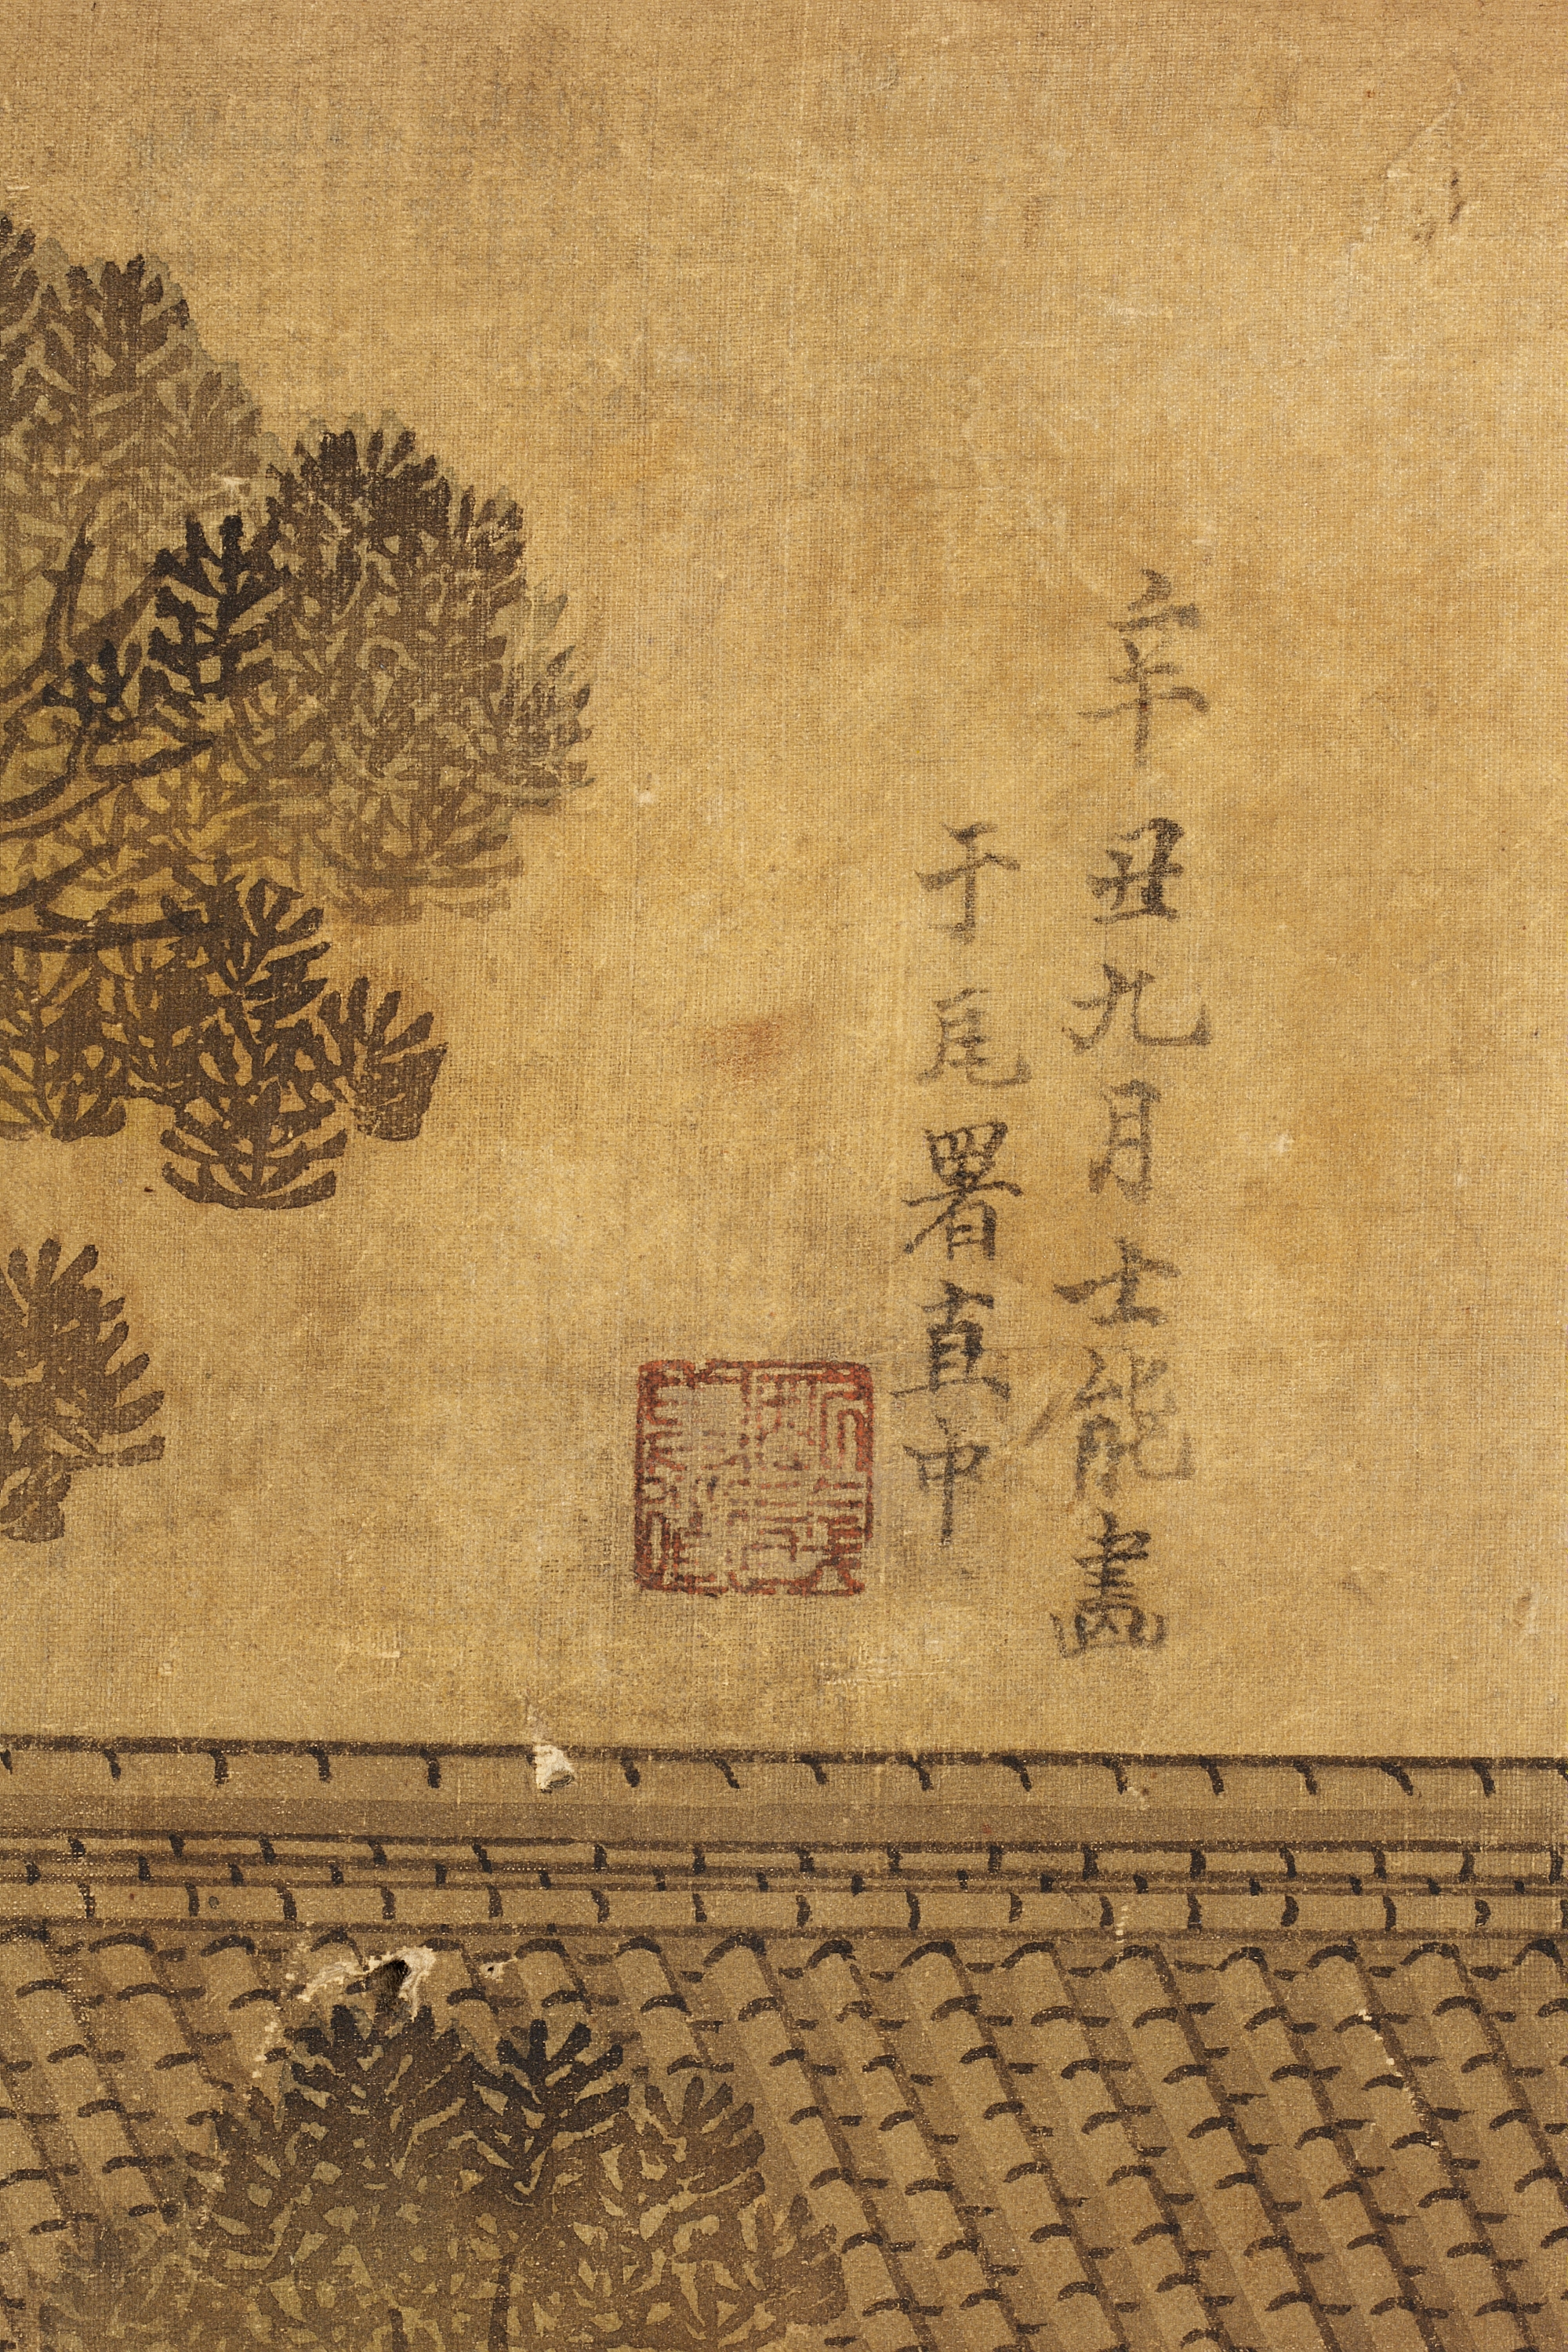 辛丑九月士能畫
于尾署直中